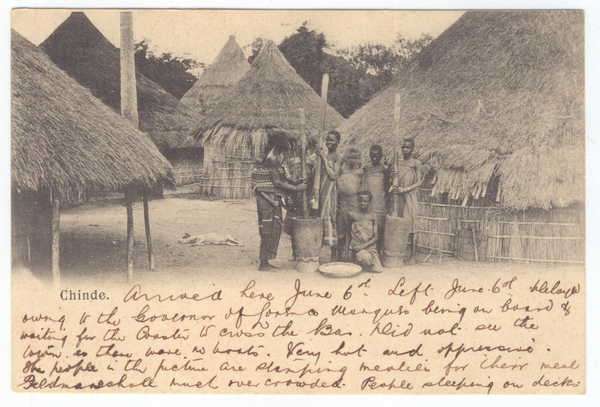 Chinde. Arrived here June 6th. Left June 6th Delayed
owing to the Governor of Lorenco Marques being on board &
waiting for the Coaster to cross the Bar. Did not see the
town as there were no boats. Very hot and oppressive.
The people in the picture are stamping mealies for their meal
Feldmarschall much overcrowded. People sleeping on deck.